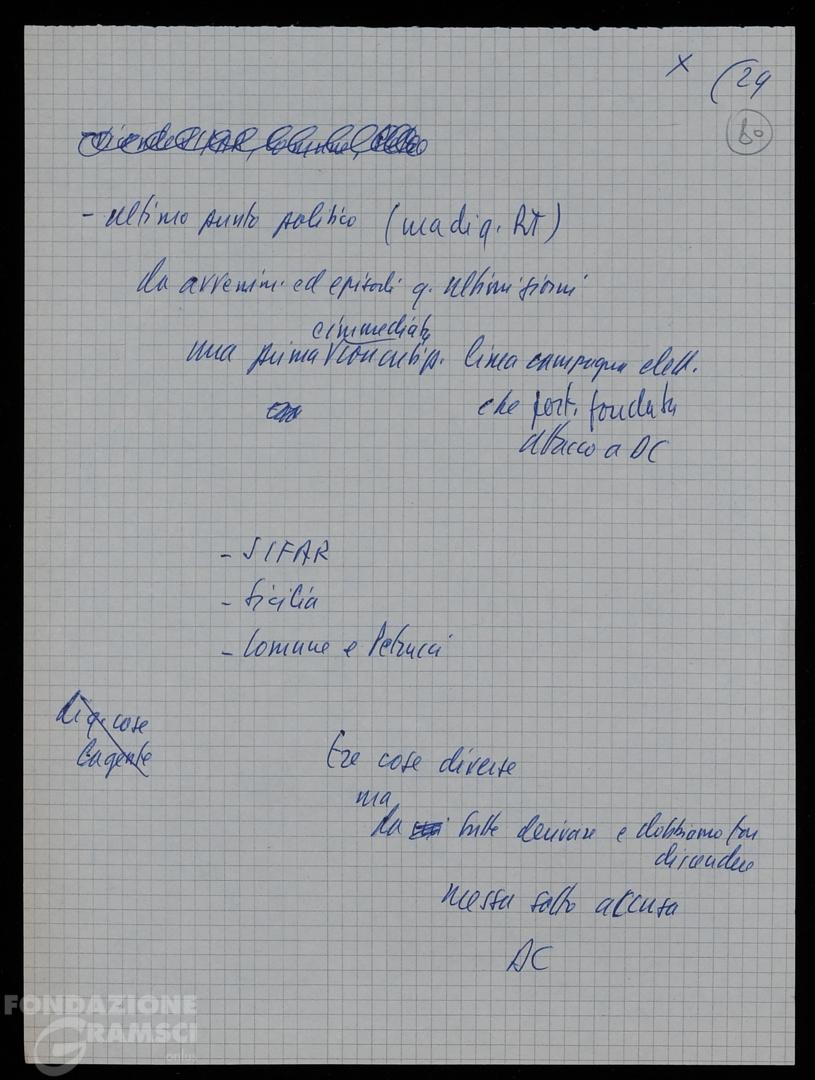 x (29
60
- ultimo punto politico (ma di q. RT)
da avvenim. ed episodi q. ultimi giorni
e immediata
una prima linea campagna elett.
che port. fondata
attacco a DC
- SIFAR
- Sicilia
- Comune e Petrucci
di q. cose
la gente
tre cose diverse
ma
da tutte derivare e dobbiamo far
discendere
messa sotto accusa
DC
FONDAZIONE
GRAMSCI
onlus